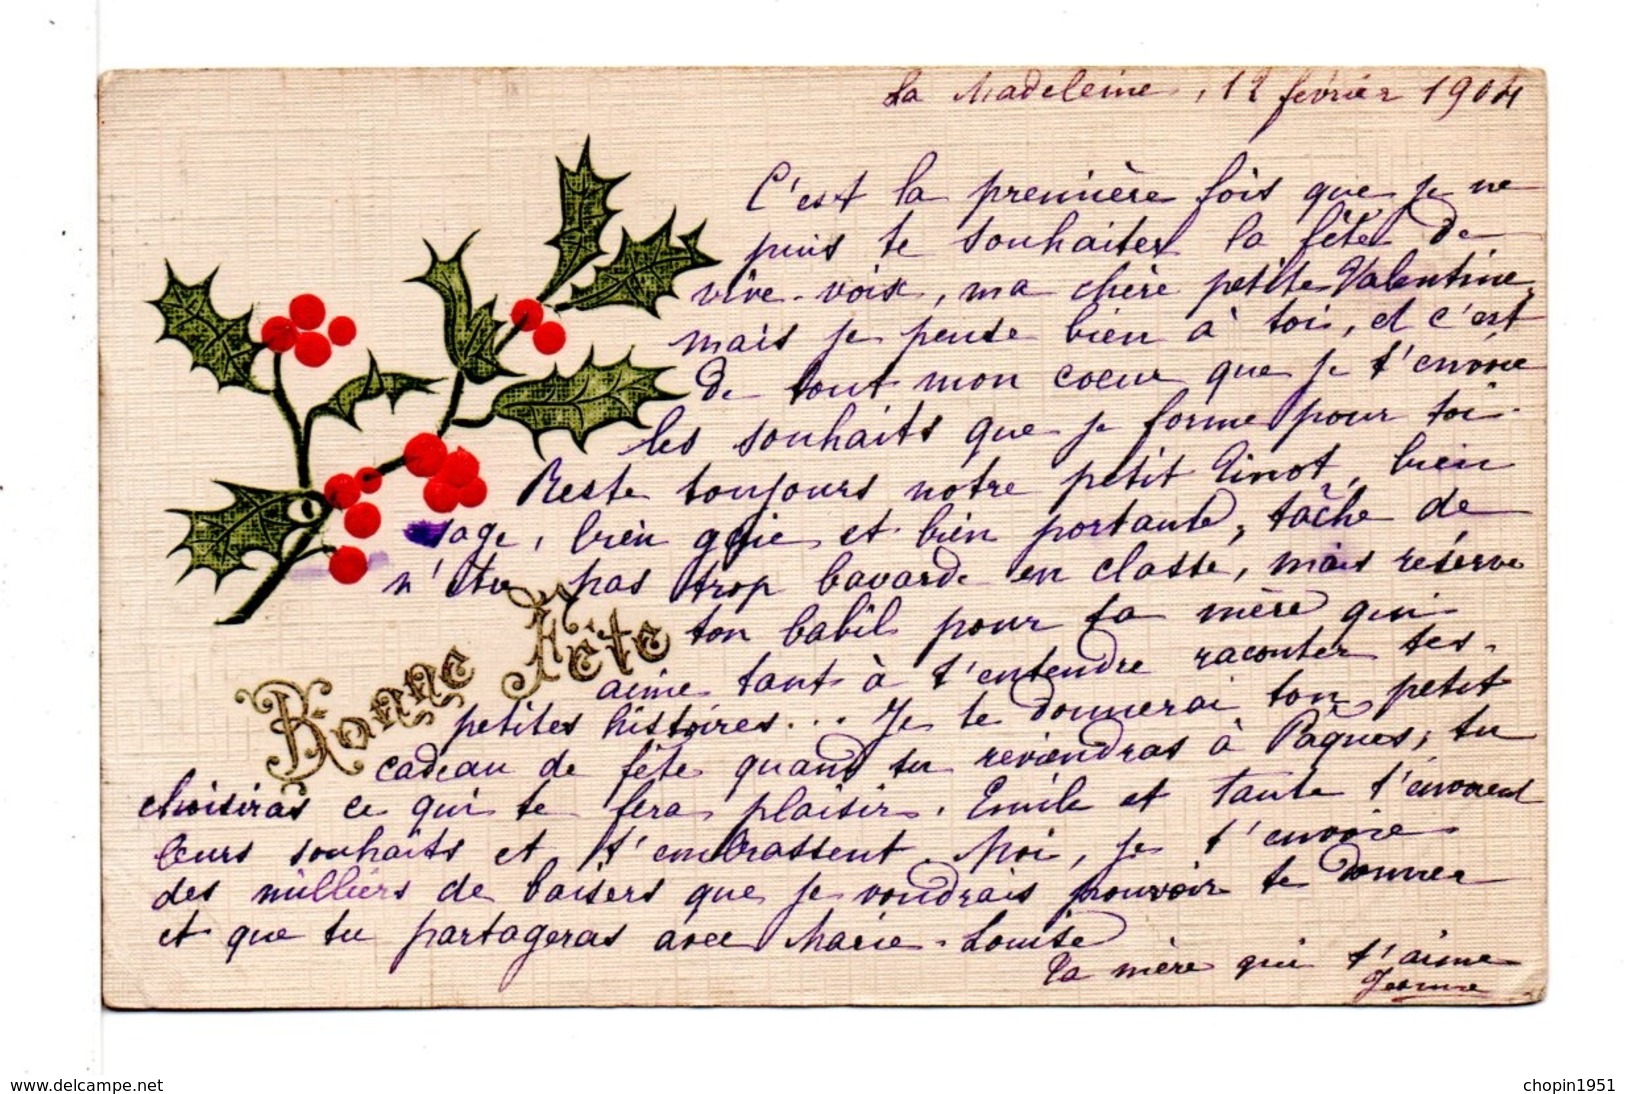 La Madeleine, 12 février 1904
C'est la première fois que je ne
puis te souhaiter la fête de
vive-voix, ma chère petite Valentine,
mais je pense bien à toi, et c'est
de tout mon coeur que je t'envoie
les souhaits que je forme pour toi.
Reste toujours notre petit Pinot, bien
sage, bien gaie et bien portante, tâche de
n'être pas trop bavarde en classe, mais réserve
ton babil pour ta mère qui
aime tant à t'entendre raconter tes
petites histoires... Je te donnerai ton petit
cadeau de fête quand tu reviendras à Pâques, tu
choisiras ce qui te fera plaisir. Emile et tante t'envoient
leurs souhaits et t'embrassent. Moi, je t'envoie
des milliers de baisers que je voudrais pouvoir te donner
et que tu partageras avec Marie-Louise
Ta mère qui t'aime
Jeanne
Bonne Fête
www.delcampe.net
chopin1951